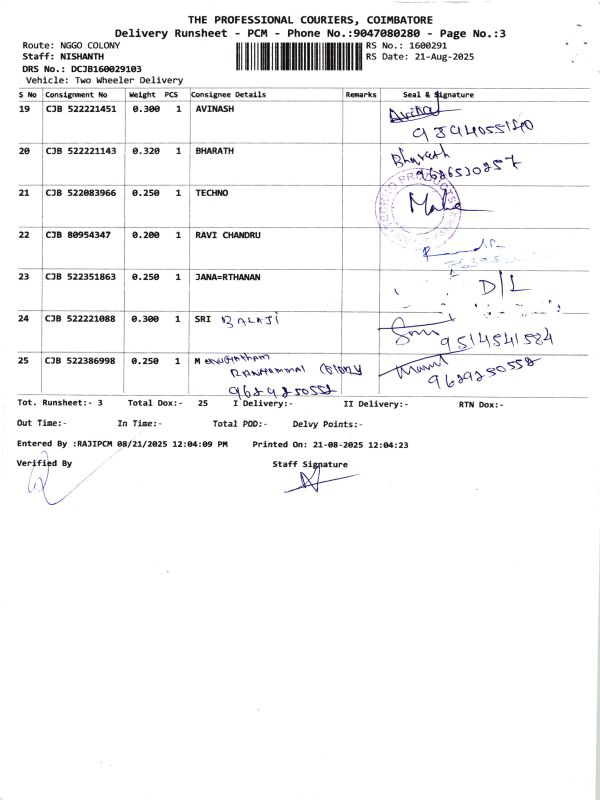 THE PROFESSIONAL COURIERS, COIMBATORE
Delivery Runsheet - PCM - Phone No.:9047080280 - Page No.:3
Route: NGGO COLONY RS No.: 1600291
Staff: NISHANTH RS Date: 21-Aug-2025
DRS No.: DCJB160029103
Vehicle: Two Wheeler Delivery
S No Consignment No Weight PCS Consignee Details Remarks Seal & Signature
19 CJB 522221451 0.300 1 AVINASH
9894055140
20 CJB 522221143 0.320 1 BHARATH Bharath
9626530257
21 CJB 522083966 0.250 1 TECHNO
22 CJB 80954347 0.200 1 RAVI CHANDRU
23 CJB 522351863 0.250 1 JANA=RTHANAN D/L
24 CJB 522221088 0.300 1 SRI BALAJI 9514541584
25 CJB 522386998 0.250 1
COLONY
9629250552 9629250552
Tot. Runsheet:- 3 Total Dox:- 25 I Delivery:- II Delivery:- RTN Dox:-
Out Time:- In Time:- Total POD:- Delvy Points:-
Entered By :RAJIPCM 08/21/2025 12:04:09 PM Printed On: 21-08-2025 12:04:23
Verified By Staff Signature